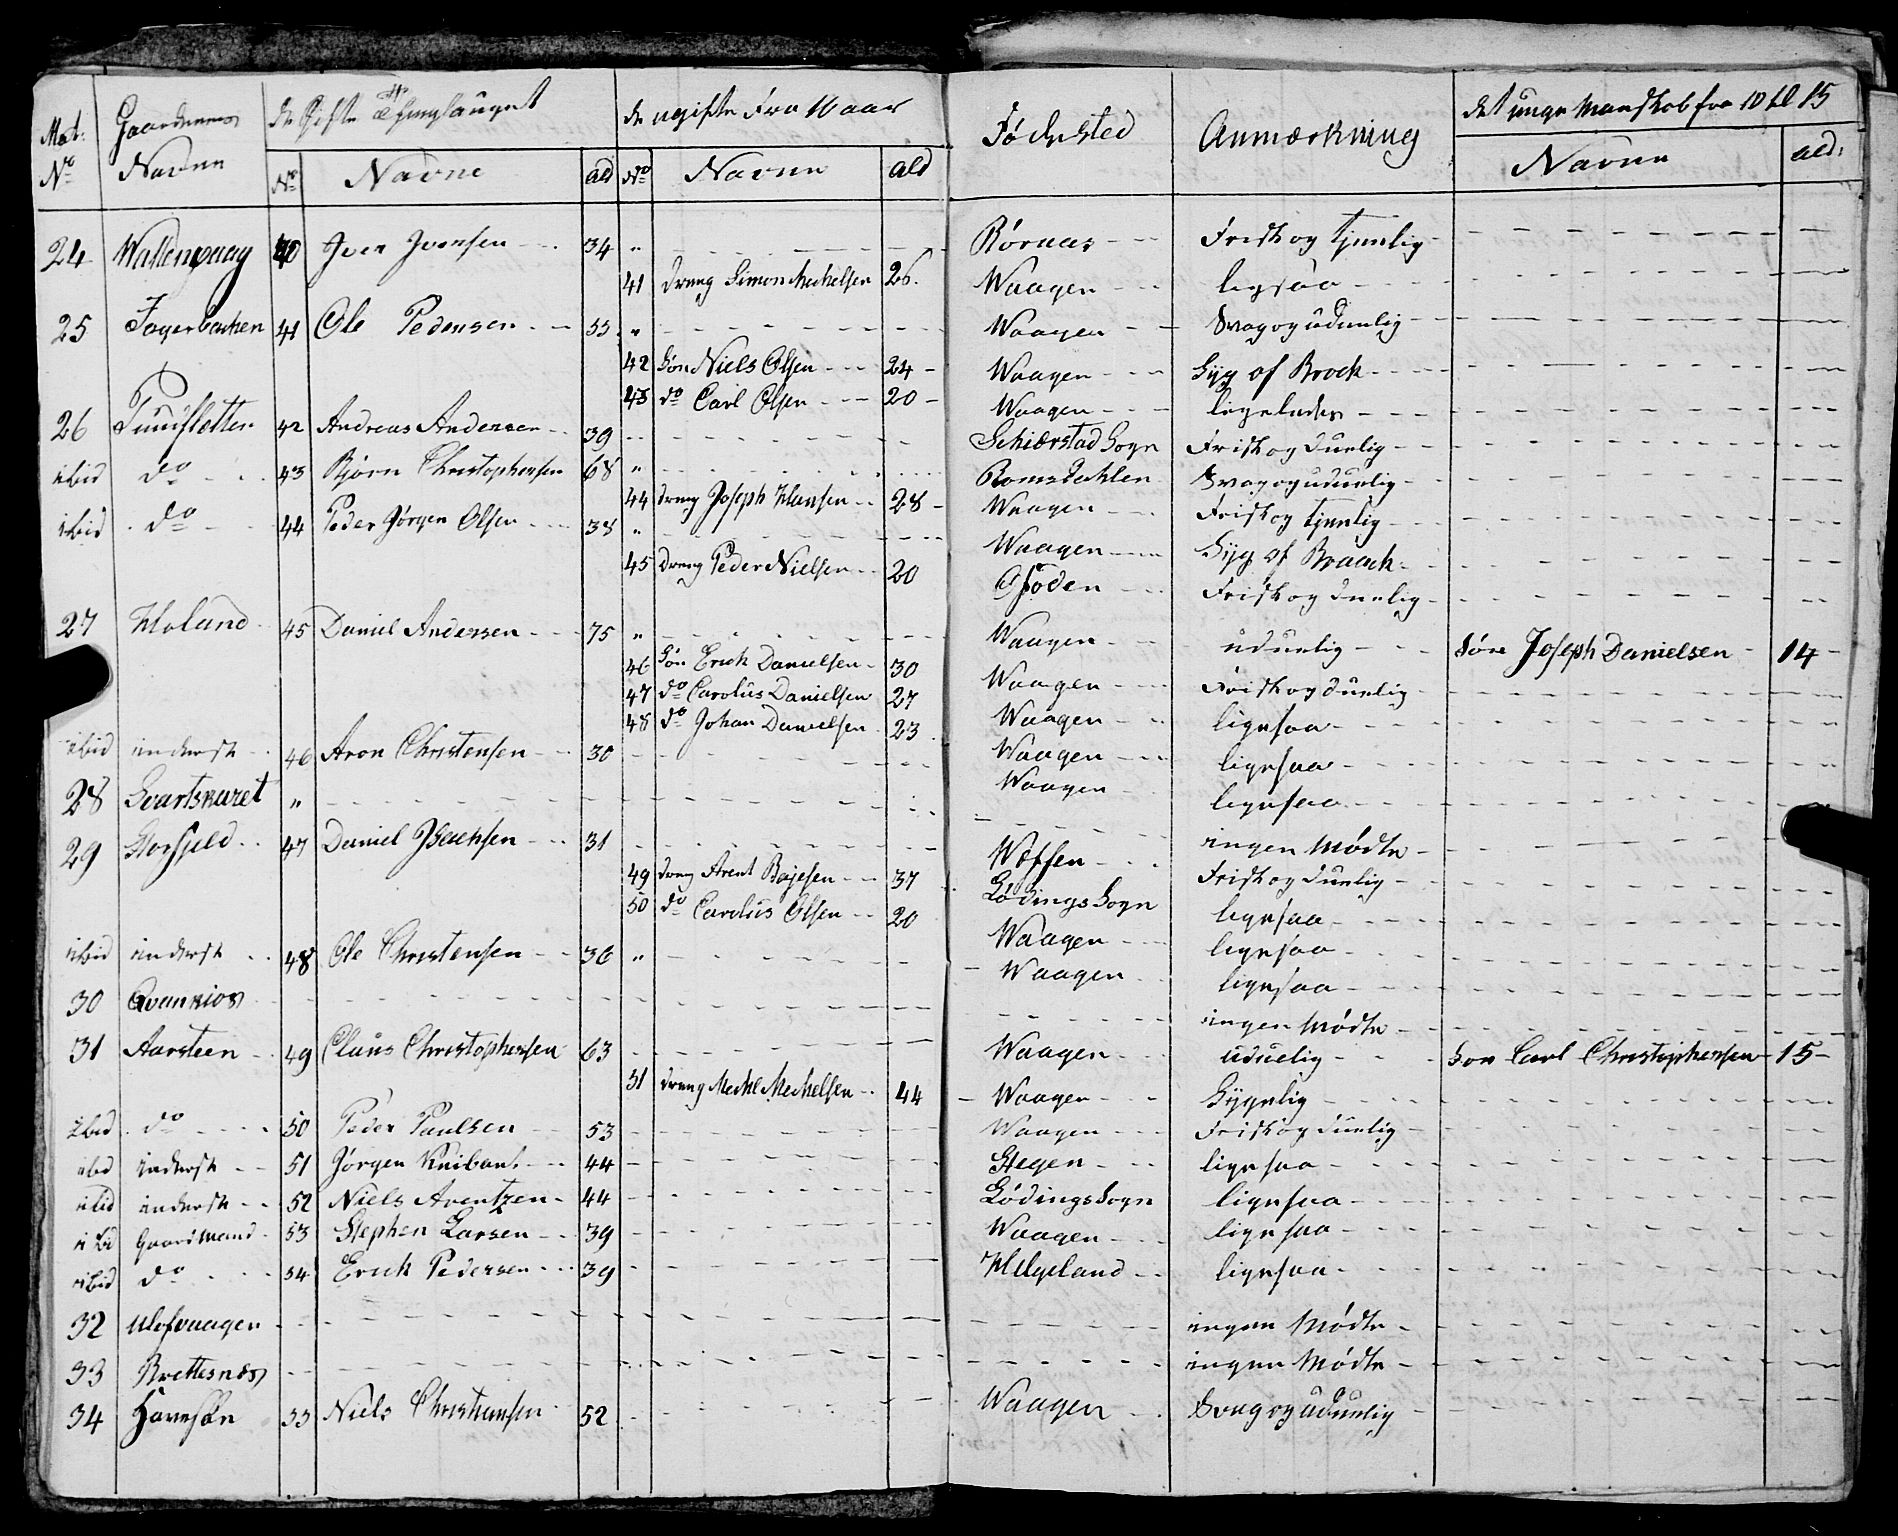 Mat: Gaardenens de Gifte de ugifte Fra 16 aar Fødested Anmærkning det unge Mandskab fra 10 til 15
No Navne No Navne ald No Navne ald Navne ald:
24 40 Iver Iversen 34 " Rørаas Frisk og tjenlig
41 dreng Simon Mechelsen 26. Waagen ligesaa
25 Fagerbachen 41 Ole Pedersen 55 " Waagen Svag og uduelig
42 Søn Niels Olsen 24 Waagen Syg af Brock
43 do Carl Olsen 20 Waagen ligeledes
26 42 Andreas Andersen 39 Schiærstad Sogn Frisk og duelig
ibid do 43 Bjørn Christophersen 68 " Romsdahlen Svag og uduelig
44 dreng Joseph Hansen 28 Waagen Frisk og tjenlig
ibid do 44 Peder Jørgen Olsen 38 " Waagen Syg af Braack
45 dreng Peder Nielsen 20 Frisk og duelig
27 Holand 45 Daniel Andersen 75 " Waagen uduelig Søn Joseph Danielsen 14
46 Søn Erich Danielsen 30 Waagen Frisk og duelig
47 do Carolus Danielsen 27 Waagen ligesaa
48 do Johan Danielsen 23 Waagen ligesaa
ibid inderst 46 Aron Christensen 30 Waagen ligesaa
28 Svartskaret " ingen Mødte
29 47 Daniel Isachsen 31 Wefsen Frisk og duelig
49 dreng Arent Bajesen 37 Lødings Sogn ligesaa
50 do Carolus Olsen 20 Waagen ligesaa
ibid inderst 48 Ole Christensen 36 " Waagen ligesaa
30 ingen Mødte
31 Aarsteen 49 Claus Christophersen 63 Waagen uduelig Søn Carl Christophersen 15
51 dreng Mechel Mechelsen 44 Waagen Sygelig
ibid do 50 Peder Paulsen 53 Waagen Frisk og duelig
ibid inderst 51 Jørgen 44 Stegen ligesaa
ibid inderst 52 Niels Arentzen 44 Lødings Sogn ligesaa
ibid Gaardmand 53 Stephen Larsen 39 Waagen ligesaa
ibid do 54 Erich Pedersen 39 Helgeland ligesaa
32 Ulefvaagen ingen Mødte
33 Brettesnes ingen Mødte
34 55 Niels Christiansen 52 Waagen Svag og uduelig